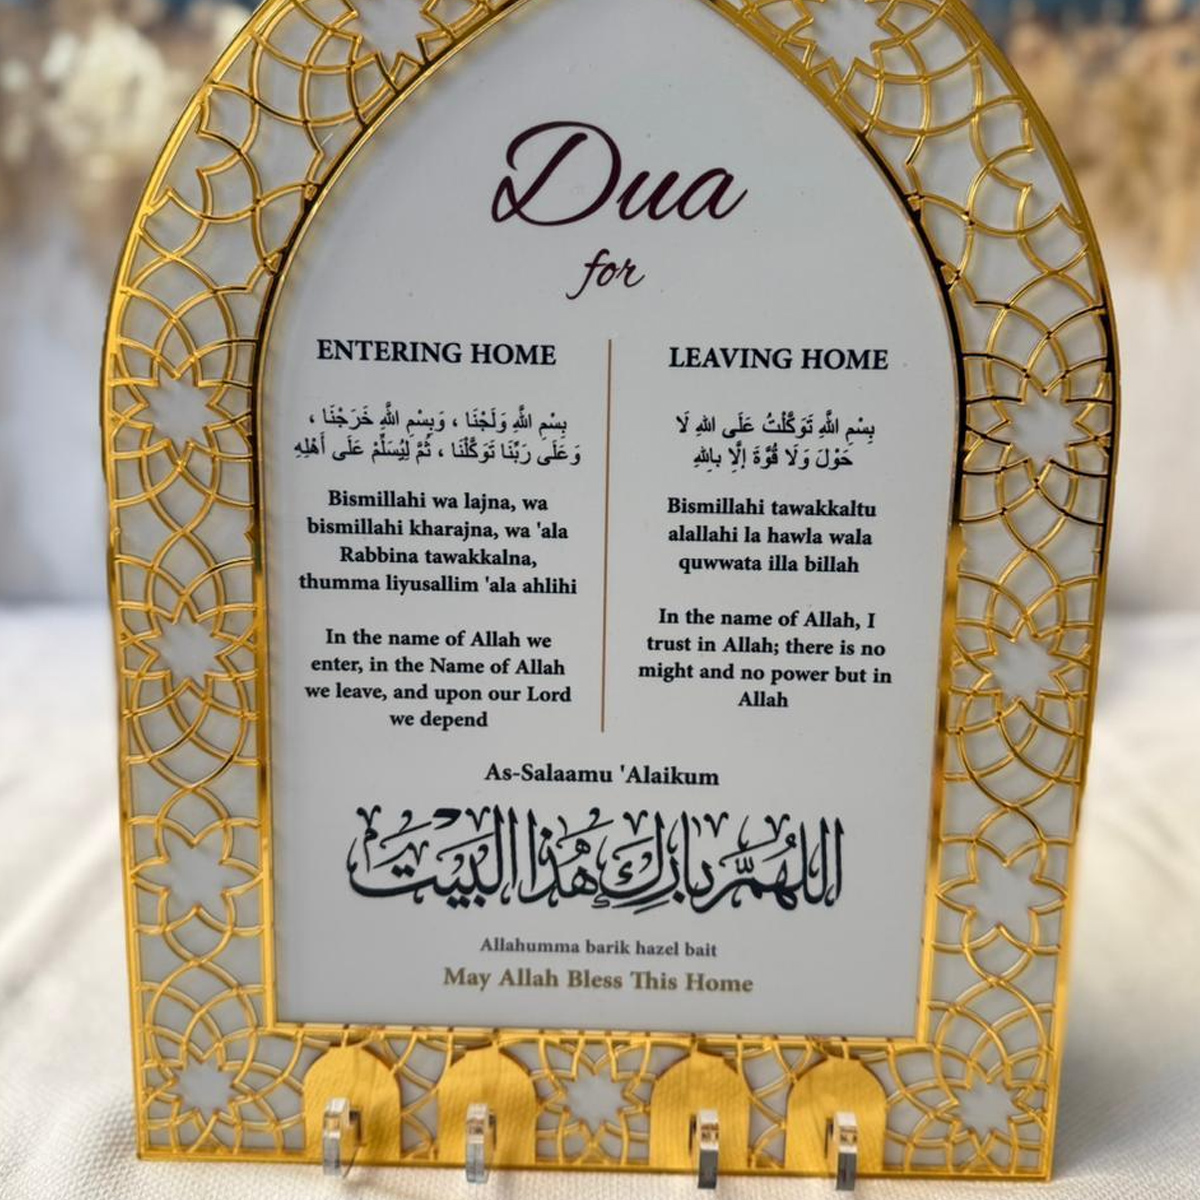 Dua
for
ENTERING HOME
بِسْمِ اللَّهِ وَلَجْنَا ، وَبِسْمِ اللَّهِ خَرَجْنَا ،
وَعَلَى رَبِّنَا تَوَكَّلْنَا ، ثُمَّ لِيُسَلِّمْ عَلَى أَهْلِهِ
Bismillahi wa lajna, wa
bismillahi kharajna, wa 'ala
Rabbina tawakkalna,
thumma liyusallim 'ala ahlihi
In the name of Allah we
enter, in the Name of Allah
we leave, and upon our Lord
we depend
LEAVING HOME
بِسْمِ اللَّهِ تَوَكَّلْتُ عَلَى اللهِ لَا
حَوْلَ وَلَا قُوَّةَ إِلَّا بِاللهِ
Bismillahi tawakkaltu
alallahi la hawla wala
quwwata illa billah
In the name of Allah, I
trust in Allah; there is no
might and no power but in
Allah
As-Salaamu 'Alaikum
اللهُمَّ بَارِك هَذَا البَيْت
Allahumma barik hazel bait
May Allah Bless This Home